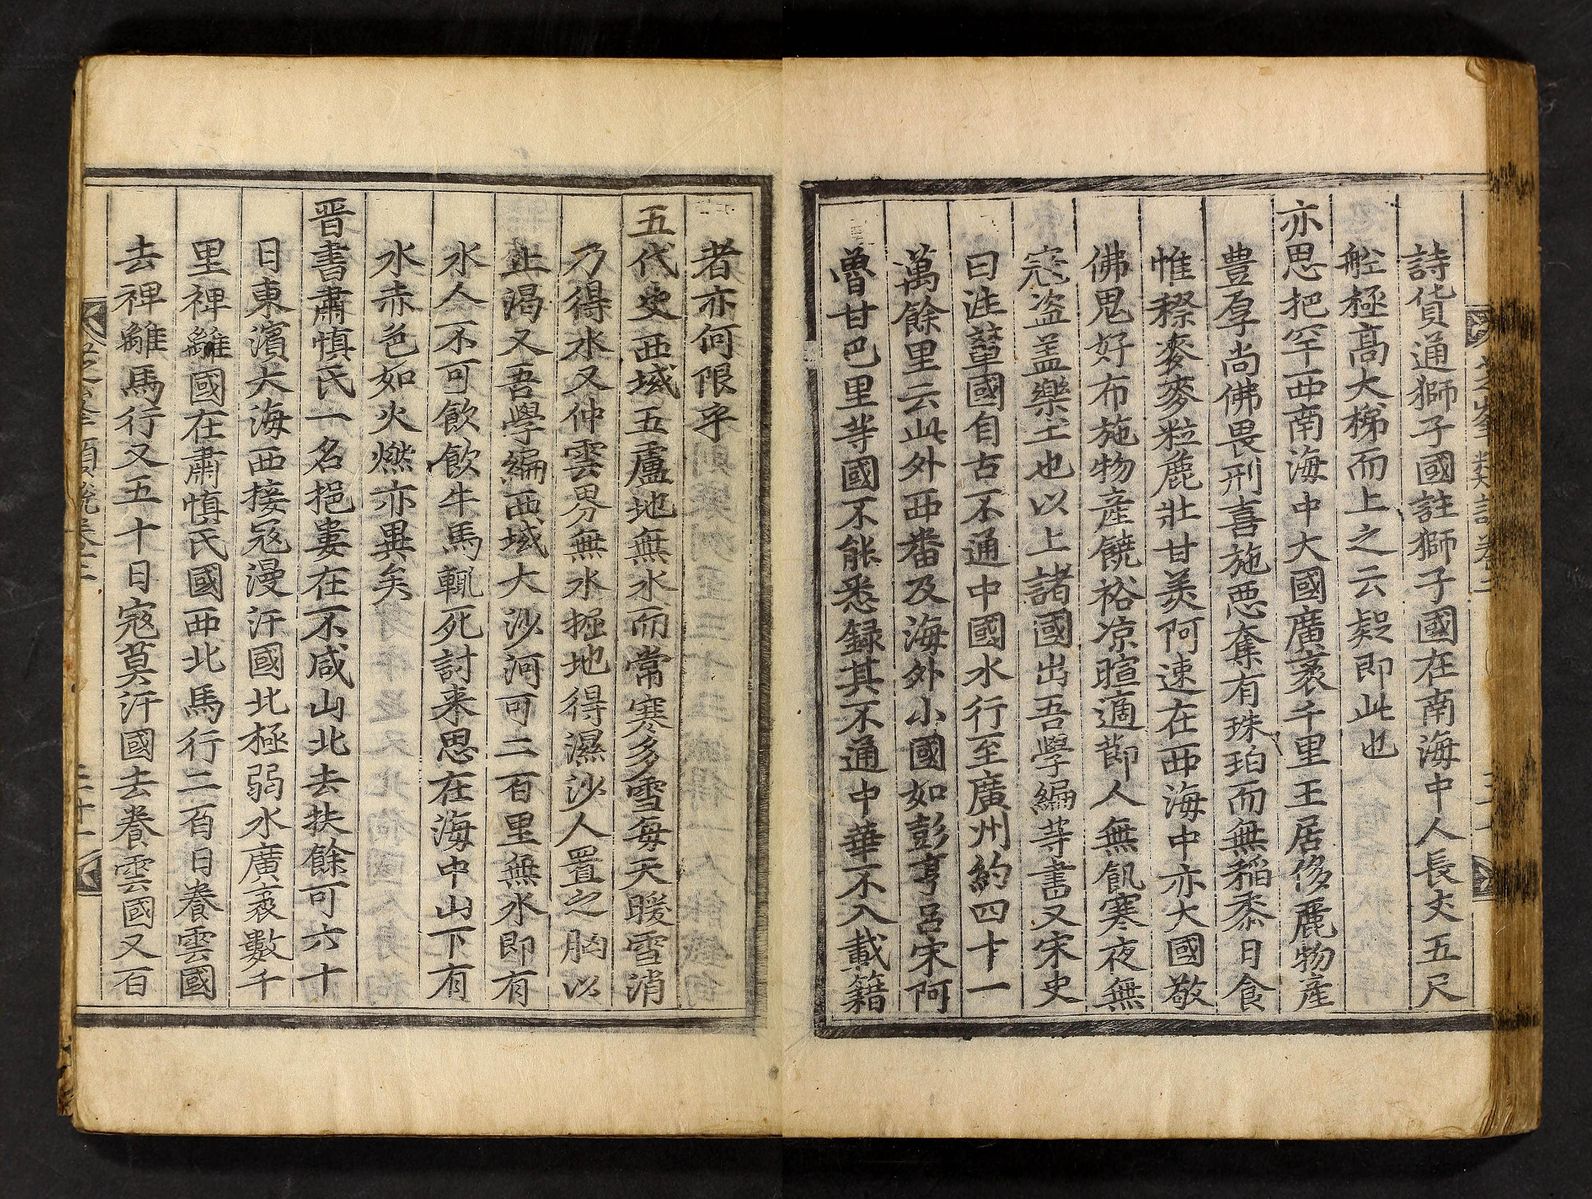 詩貨通獅子國註獅子國在南海中人長丈五尺
舩極高大梯而上之云疑即此也
亦思把罕西南海中大國廣袤千里王居侈麗物産
豊厚尚佛畏刑喜施惡奪有珠珀而無稻黍日食
惟穄麥麥粒麁壯甘美阿速在西海中亦大國敬
佛鬼好布施物産饒裕凉暄適節人無飢寒夜無
寇盗盖樂土也以上諸國出吾學編等書又宋史
曰注輦國自古不通中國水行至廣州約四十一
萬餘里云此外西番及海外小國如彭亨呂宋阿
魯甘巴里等國不能悉録其不通中華不入載籍
者亦何限乎
五代史西域五盧地無水而常寒多雪每天暖雪消
乃得水又仲雲界無水掘地得濕沙人置之胸以
止渴又吾學編西域大沙河可二百里無水即有
水人不可飲飲牛馬輒死討来思在海中山下有
水赤色如火燃亦異矣
晋書肅慎氏一名挹婁在不咸山北去扶餘可六十
日東濱大海西接冦漫汗國北極弱水廣袤數千
里裨離國在肅慎氏國西北馬行二百日養雲國
去裨離馬行又五十日寇莫汗國去養雲國又百
芝峯類説卷二
三十一